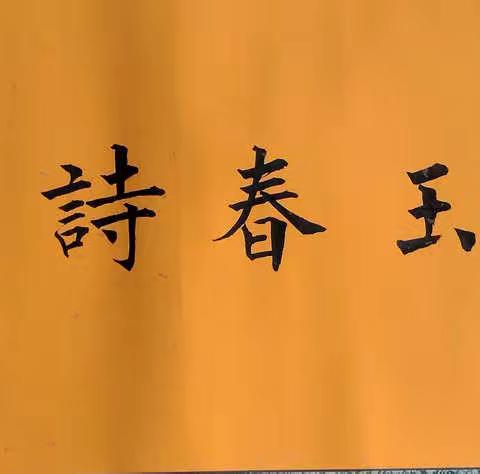 玉春詩